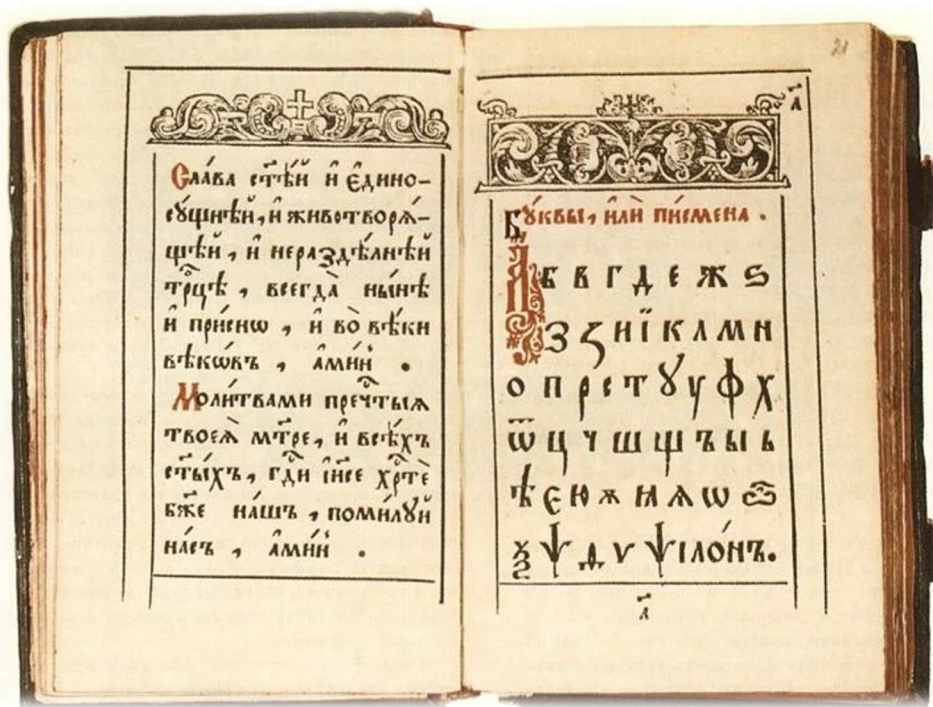 Сла́ва ст҃ѣ́й и҆ є҆дино-
сꙋ́щнѣй, и҆ животворѧ́-
щѣй, и҆ нераздѣ́лнѣй
трⷪ҇цѣ, всегда̀ ны́нѣ
и҆ при́снѡ, и҆ во̀ вѣ́ки
вѣкѡ́въ, а҆ми́нь.
Моли́твами пречⷭ҇тыѧ
твоеѧ̀ мт҃ре, и҆ всѣ́хъ
ст҃ы́хъ, гдⷭ҇и і҆и҃се хрⷭ҇тѐ
бж҃е нашъ, поми́лꙋй
на́съ, а҆ми́нь.
21
а҃
Бꙋ́квы, и҆лѝ пи́смена.
А Б В Г Д Е Ж Ѕ
З Ꙁ И Ї К Л М Н
О П Р С Т Ꙋ У Ф Х
Ѿ Ц Ч Ш Щ Ъ Ы Ь
Ѣ Є Ю Ѫ Ꙗ Ѧ Ѡ
Ѯ Ѱ Ѵ ѱїло́нъ.
а҃